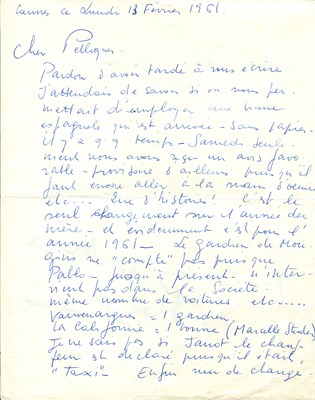 Cannes ce Lundi 13 Février 1961.
Cher Pellequer.
Pardon d'avoir tardé à vous écrire
J'attendais de savoir si on nous per
mettait d'employer une bonne
espagnole qui est arrivée - sans papier.
il y a q.q temps - Samedi seule-
ment nous avons reçu un avis favo
rable - provisoire d'ailleurs puisqu'il
faut encore aller à la main d'oeuvre
etc... Que d'histoires! c'est le
seul changement sur l'année der
nière - et évidemment c'est pour l'
année 1961 - Le gardien de Mou
gins ne "compte" pas puisque
Pablo - jusqu'à présent - n'inter-
vient pas dans la Société.
même nombre de voitures etc....
Vauvenargues = 1 gardien,
La Californie = 1 bonne (Marcelle
Je ne sais pas si Janot le chauf-
feur est déclaré puisqu'il était
"Taxi" - Enfin rien de changé.